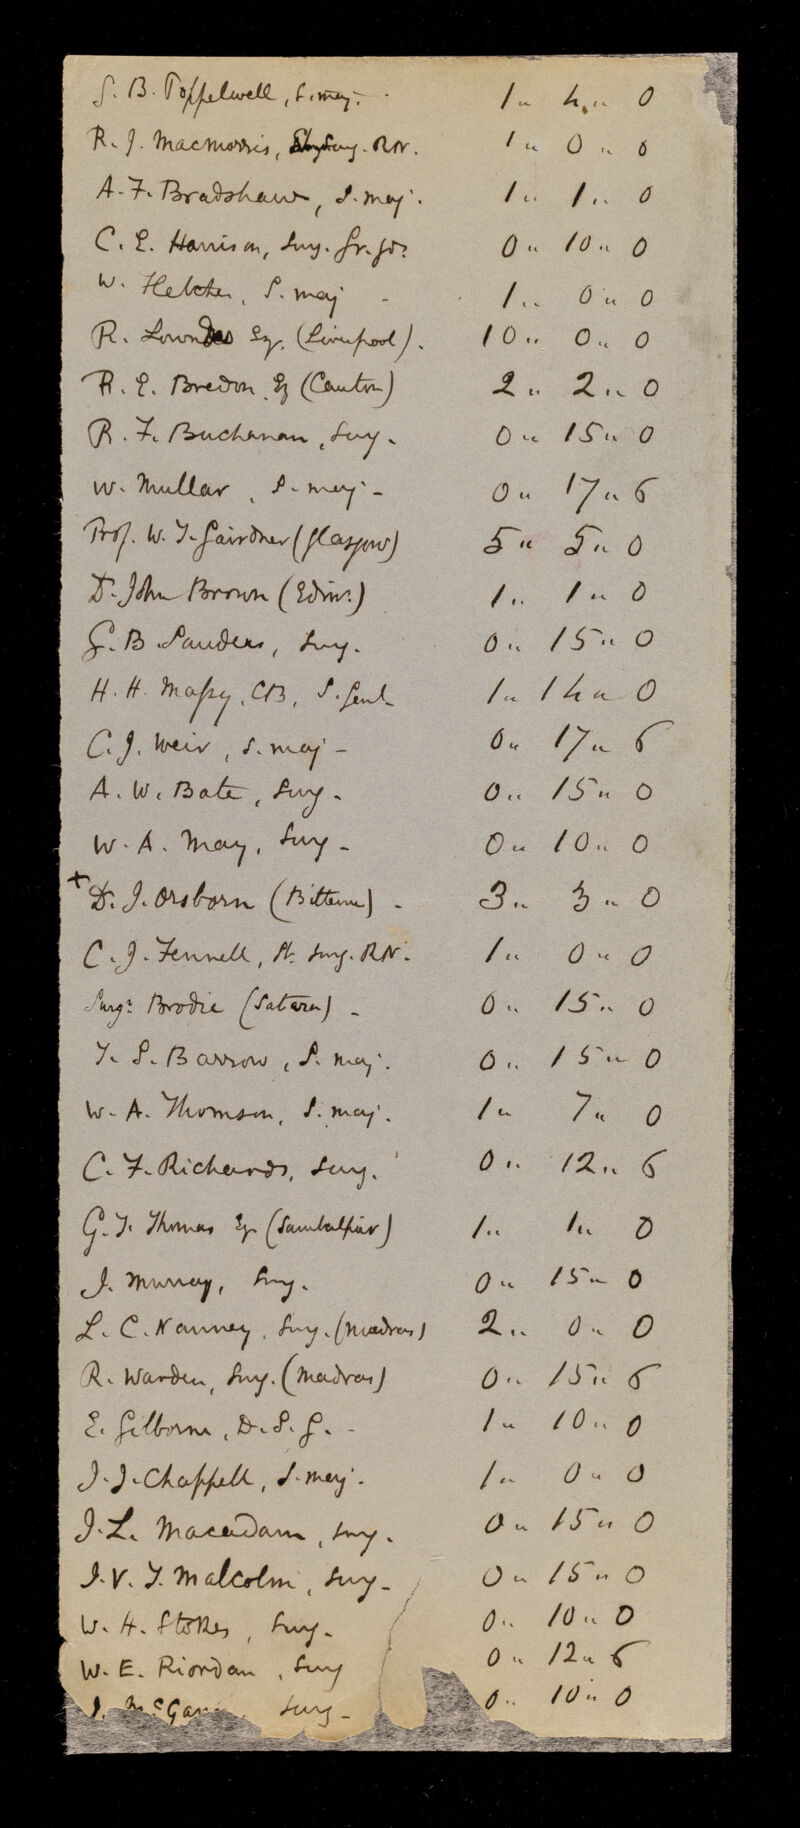 S. B. Poppelwell, S. maj. 1 " 4 " 0
R. J. Macmorris, Surg. RN. 1 " 0 " 0
A. F. Bradshaw, S. maj. 1 " 1 " 0
C. E. Harrison, Surg. Gr. Gds. 0 " 10 " 0
W. Fletcher, S. maj - 1 " 0 " 0
R. Lowndes Esq. (Liverpool). 10 " 0 " 0
R. E. Bredon Esq (Canton) 2 " 2 " 0
R. F. Buchanan, Surg. 0 " 15 " 0
W. Mullar, S. maj - 0 " 17 " 6
Prof. W. T. Gairdner (Glasgow) 5 " 5 " 0
Dr. John Brown (Edinr.) 1 " 1 " 0
G. B. Sanders, Surg. 0 " 15 " 0
H. H. Massy, CB, S. Genl. 1 " 14 " 0
C. J. Weir, S. maj - 0 " 17 " 6
A. W. Bate, Surg. 0 " 15 " 0
W. A. May, Surg - 0 " 10 " 0
+ Dr. J. Orsborn (Bitterne) - 3 " 3 " 0
C. J. Fennell, St. Surg. RN. 1 " 0 " 0
Surgn. Brodie (Satara) - 0 " 15 " 0
T. S. Barrow, S. maj. 0 " 15 " 0
W. A. Thomson, S. maj. 1 " 7 " 0
C. F. Richards, Surg. 0 " 12 " 6
G. T. Thomas Esq. (Sambalpúr) 1 " 1 " 0
J. Murray, Surg. 0 " 15 " 0
L. C. Nanney, Surg. (Madras) 2 " 0 " 0
R. Warden, Surg. (Madras) 0 " 15 " 6
E. Gilborne, D. S. G. - 1 " 10 " 0
J. J. Chappell, S. maj. 1 " 0 " 0
J. L. Macadam, Surg. 0 " 15 " 0
J. V. T. Malcolm, Surg - 0 " 15 " 0
W. H. Stokes, Surg. 0 " 10 " 0
W. E. Riordan, Surg 0 " 12 " 6
J. Surg - 0 " 10 " 0